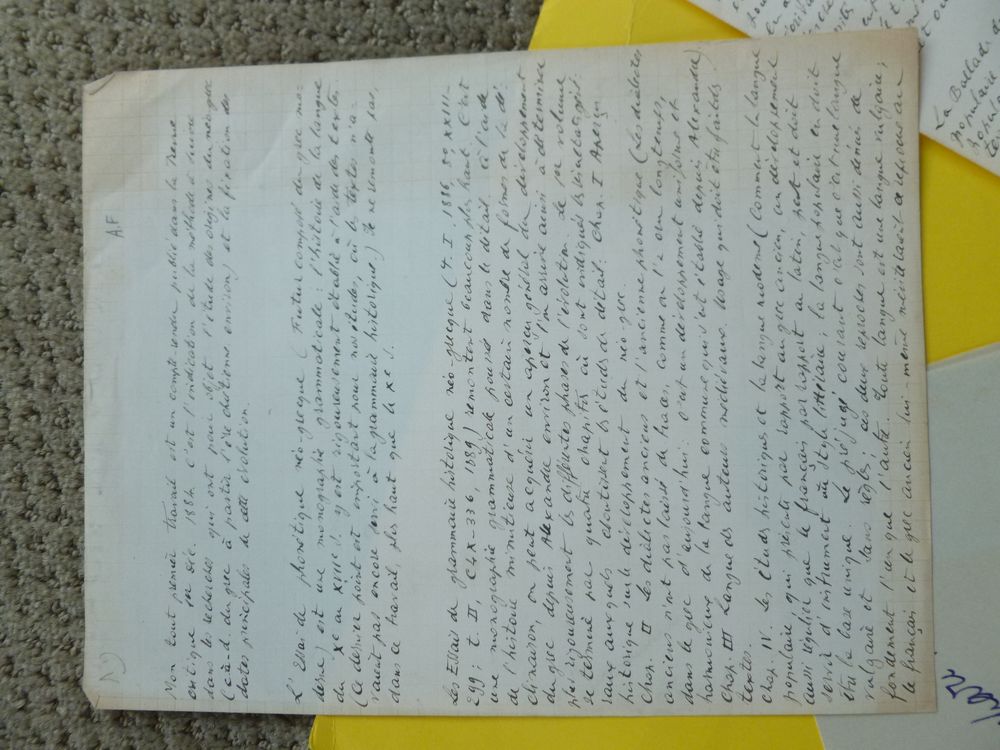 19
A.F
Mon tout premier travail est un compte rendu publié dans la Revue
critique en déc. 1884. C'est l'indication de la méthode à suivre
dans les recherches qui ont pour objet l'étude des origines du néo-grec
(c.à.d. du grec à partir l'ère chrétienne environ) et la fixation des
dates principales de cette évolution.
L'Essai de phonétique néo-grecque (Futur composé du grec mo-
derne) est une monographie grammaticale : l'histoire de la langue
du Xe au XIIIe s. y est rigoureusement établie à l'aide des textes.
Ce dernier point est important pour nos études, où les textes n'a-
vaient pas encore servi à la grammaire historique) Je ne remonte pas,
dans ce travail, plus haut que le Xe s.
Les Essais de grammaire historique néo-grecque (t. I. 1886, 89, XXIII-
299 ; t. II, CLX-336, 1889) remontent beaucoup plus haut. C'est
une monographie grammaticale poussée dans le détail. à l'aide
de l'histoire minutieuse d'un certain nombre de formes de la dé-
clinaison, on peut acquérir un aperçu général du développement
du grec depuis Alexandre environ et l'on arrive aussi à déterminer
plus rigoureusement les différentes phases de l'évolution. Le 1er volume
se termine par quatre chapitres où sont indiqués les
aux quels doivent l'étude du détail. Chap. I Aperçu
historique sur le développement du néo-grec.
Chap. II Les dialectes anciens et l'ancienne phonétique (Les dialectes
anciens n'ont pas laissé de traces, comme on l'a cru longtemps,
dans le grec d'aujourd'hui : c'est un développement uniforme et
harmonieux de la langue commune qui s'est établie depuis Alexandre).
Chap. III Langue des auteurs médiévaux. Usage qui doit être fait des
textes.
Chap. IV. Les études historiques et la langue moderne (Comment la langue
populaire qui présente par rapport au grec ancien, un développement
aussi régulier que le français par rapport au latin, peut et doit
servir d'instrument au style littéraire. la langue populaire en doit
être la base unique. Le préjugé courant c'est que c'est une langue
vulgaire et sans règles ; ces deux reproches sont aussi dénués de
fondement l'un que l'autre. Toute langue est une langue vulgaire ;
le français et le grec ancien lui-même méritteraient ce reproche au
La Ballade
populaire